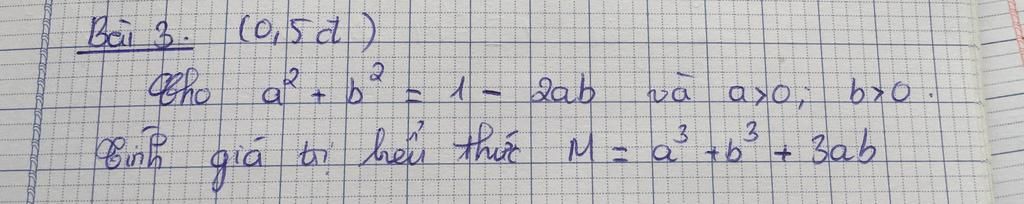 Bài 3. (0,5đ)
Cho a² + b² = 1 - 2ab và a>0; b>0.
Tính giá trị biểu thức M = a³ + b³ + 3ab